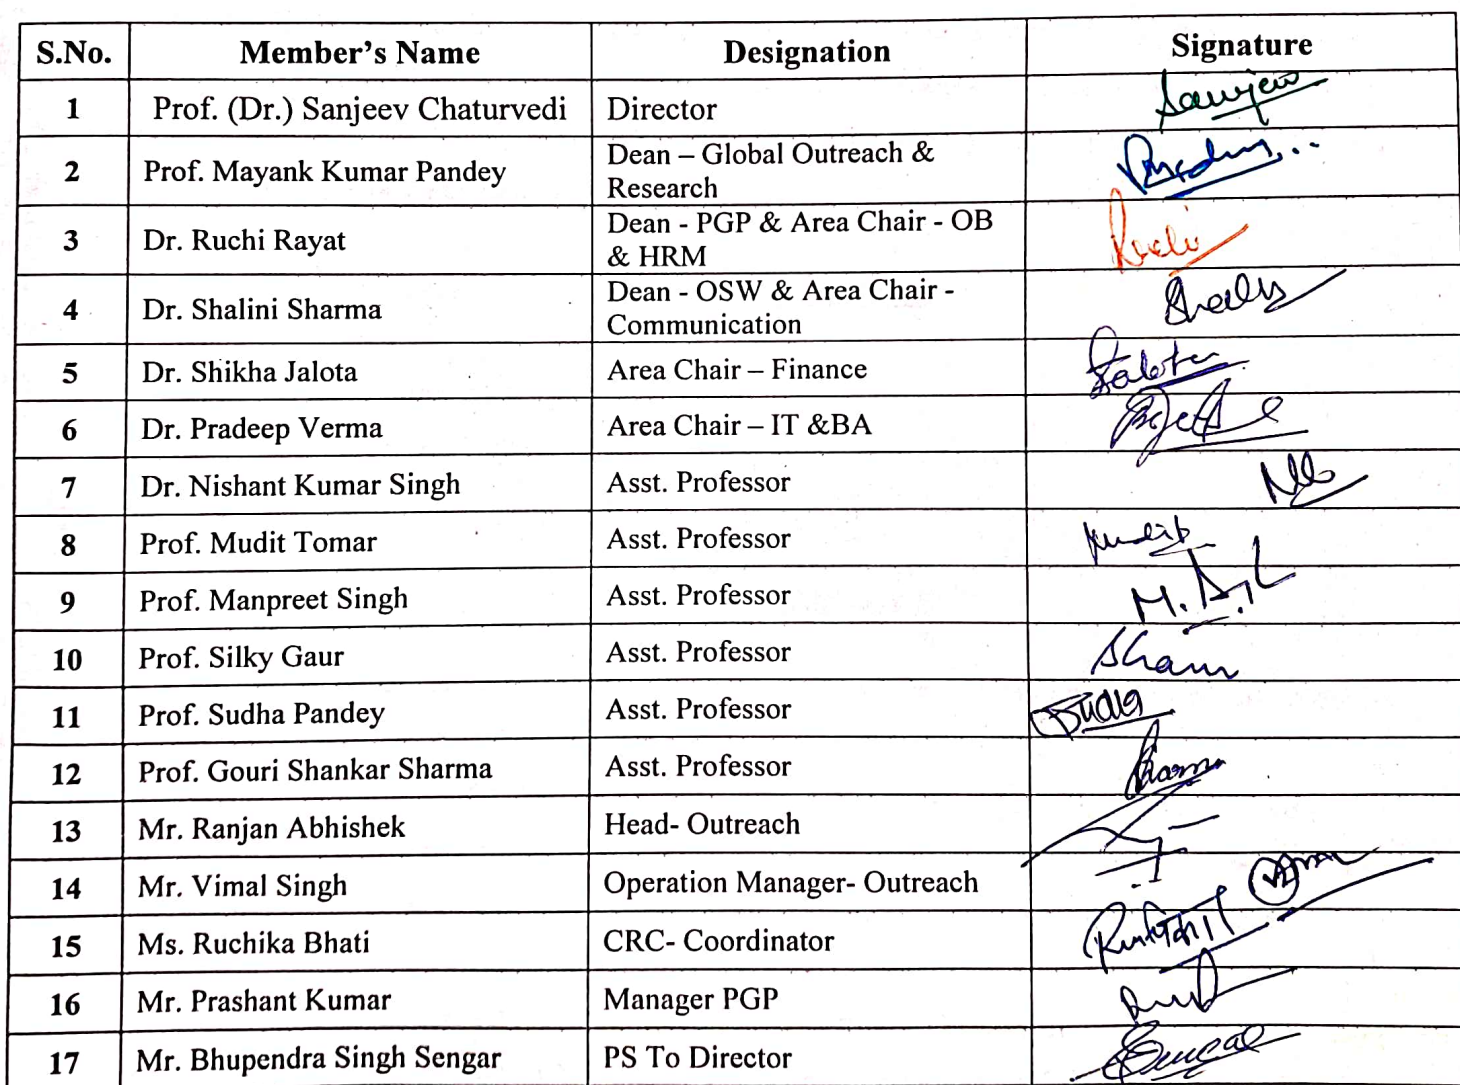 S.No. Member's Name Designation Signature
1 Prof. (Dr.) Sanjeev Chaturvedi Director Sanjeev
2 Prof. Mayank Kumar Pandey Dean – Global Outreach &
Research
3 Dr. Ruchi Rayat Dean - PGP & Area Chair - OB
& HRM Ruchi
4 Dr. Shalini Sharma Dean - OSW & Area Chair -
Communication
5 Dr. Shikha Jalota Area Chair – Finance Jalota
6 Dr. Pradeep Verma Area Chair – IT &BA
7 Dr. Nishant Kumar Singh Asst. Professor
8 Prof. Mudit Tomar Asst. Professor Mudit
9 Prof. Manpreet Singh Asst. Professor
10 Prof. Silky Gaur Asst. Professor
11 Prof. Sudha Pandey Asst. Professor Sudha
12 Prof. Gouri Shankar Sharma Asst. Professor
13 Mr. Ranjan Abhishek Head- Outreach
14 Mr. Vimal Singh Operation Manager- Outreach
15 Ms. Ruchika Bhati CRC- Coordinator
16 Mr. Prashant Kumar Manager PGP
17 Mr. Bhupendra Singh Sengar PS To Director